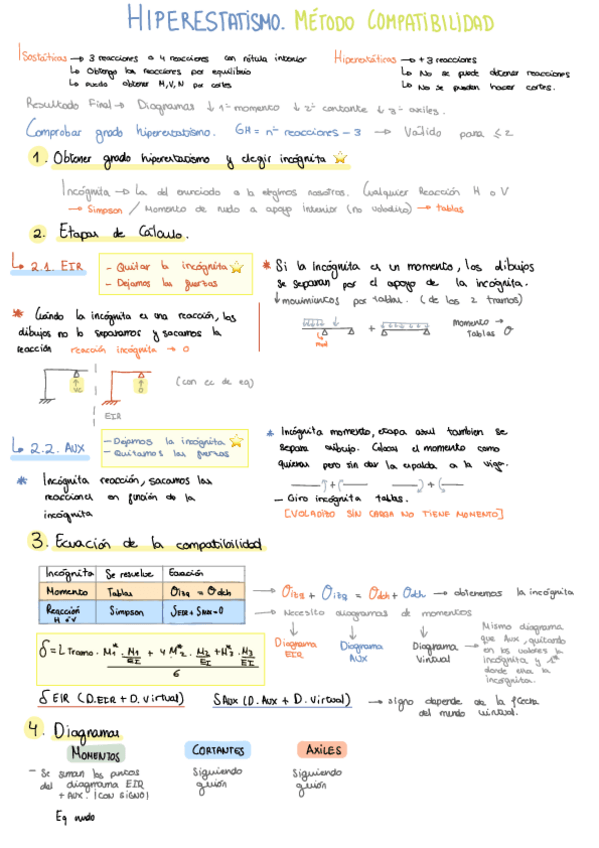 HIPERESTATISMO. MÉTODO COMPATIBILIDAD
Isostáticas → 3 reacciones o 4 reacciones con rótula interior
↳ Obtengo las reacciones por equilibrio
↳ puedo obtener M,V,N por cortes
Hiperestáticas → +3 reacciones
↳ No se puede obtener reacciones
↳ No se pueden hacer cortes.
Resultado Final → Diagramas ↓ 1º momento ↓ 2º cortante ↓ 3º axiles.
Comprobar grado hiperestatismo. GH = nº reacciones - 3 → Válido para ≤ 2
1. Obtener grado hiperestatismo y elegir incógnita
Incógnita → La del enunciado o la elegimos nosotros. Cualquier Reacción H o V
→ Simpson / Momento de nudo o apoyo interior (no voladizo) → tablas
2. Etapas de Cálculo.
↳ 2.1. EIR
- Quitar la incógnita
- Dejamos las fuerzas
* Si la incógnita es un momento, los dibujos
se separan por el apoyo de la incógnita.
↓ movimientos por tablas. (de los 2 tramos)
* Cuando la incógnita es una reacción, los
dibujos no lo separamos y sacamos la
reacción reacción incógnita → 0
+
momento →
tablas θ
(con ec de eq)
0
EIR
↳ 2.2. AUX
- Dejamos la incógnita
- Quitamos las fuerzas
* Incógnita momento, etapa aux también se
separa dibujo. Colocas el momento como
quieras pero sin dar la espalda a la viga.
- Giro incógnita tablas.
[VOLADIZO SIN CARGA NO TIENE MOMENTO]
* Incógnita reacción, sacamos las
reacciones en función de la
incógnita
3. Ecuación de la compatibilidad
Incógnita Se resuelve Ecuación
Momento Tablas θizq = θdch
Reacción H o V Simpson δEIR + δAUX = 0
→ θizq + θizq = θdch + θdch → obtenemos la incógnita
→ Necesito diagramas de momentos
Diagrama EIR
Diagrama AUX
Diagrama Virtual
→ Mismo diagrama
que Aux, quitando
en los valores la
incógnita y 1
donde era la
incógnita.
δ = L Tramo · M1* · M1/EI + 4 M2* · M2/EI + M3* · M3/EI
6
δ EIR (D.EIR + D. Virtual)
δ AUX (D. AUX + D. Virtual)
→ signo depende de la flecha
del mundo virtual.
4. Diagramas
MOMENTOS
CORTANTES
AXILES
- Se suman los puntos
del diagrama EIR
+ AUX. ¡CON SIGNO!
Eq nudo
Siguiendo
guión
Siguiendo
guión